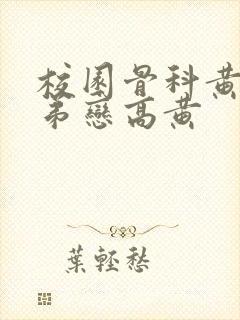 校園骨科黃
弟戀高黃
葉輕愁